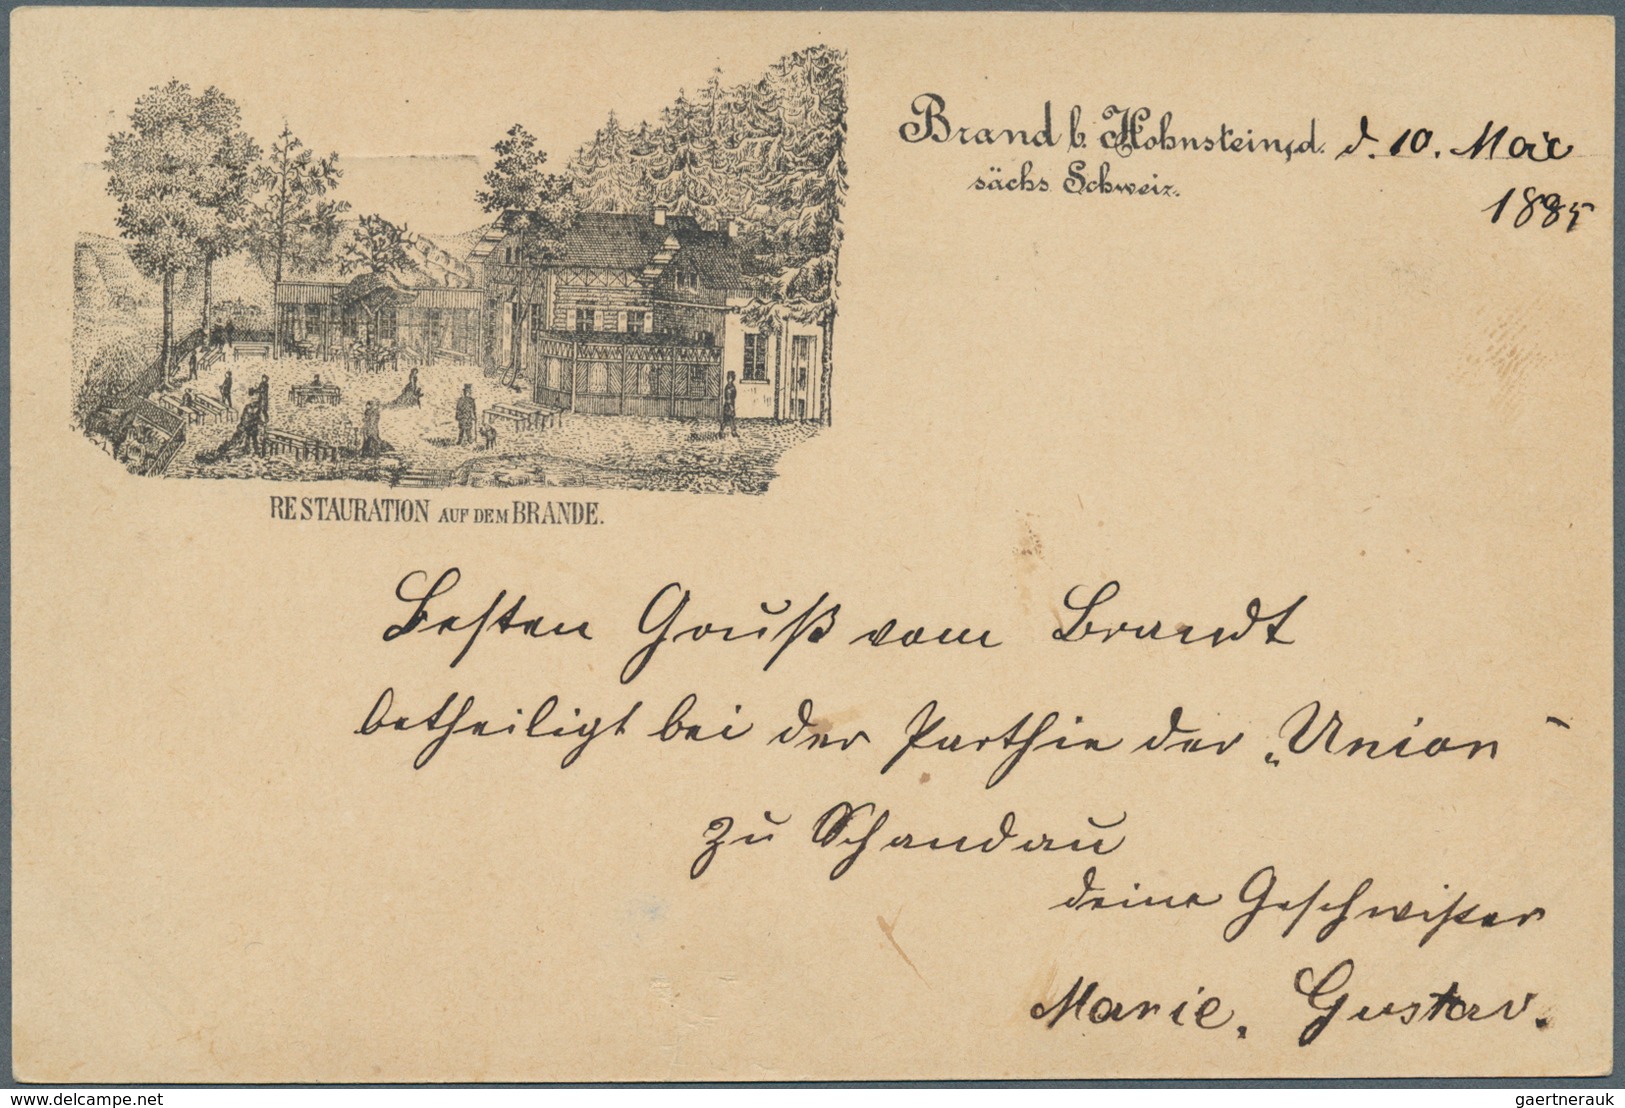 Brand b. Hohnstein, d. d. 10. Mai
sächs Schweiz.
1885
RESTAURATION AUF DEM BRANDE.
Besten Gruß vom Brandt
betheiligt bei der Parthie der „Union“
zu Schandau
deine Geschwister
Marie, Gustav.
delcampe.net
gaertnerauk